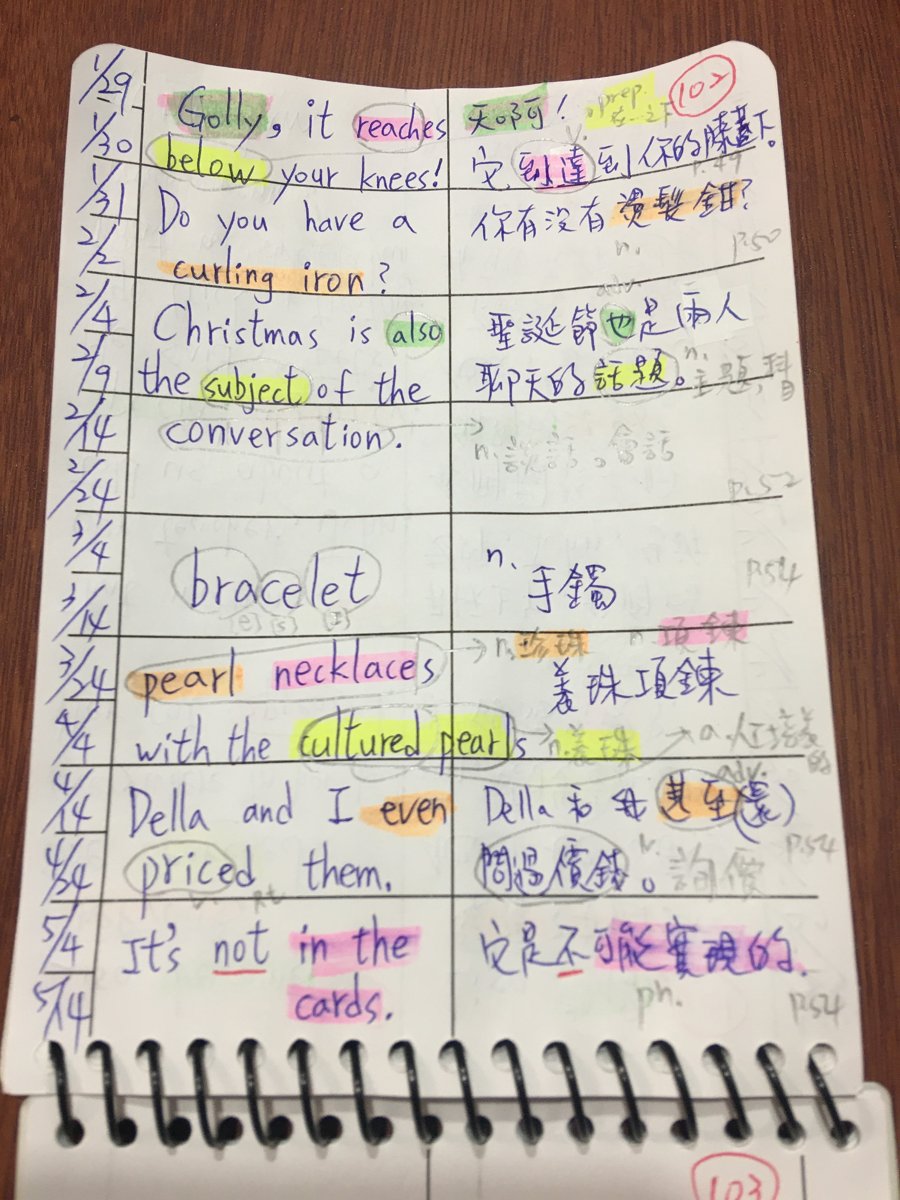 1/29
1/30
1/31
2/2
2/4
2/9
2/14
2/24
3/4
3/14
3/24
4/4
4/14
4/24
5/4
5/14
102
Golly, it reaches
below your knees!
prep.
在…之下
天啊!
v.
它到達到你的膝蓋下。
p.49
Do you have a
curling iron?
你有沒有燙髮鉗?
n.
p.50
Christmas is also
the subject of the
conversation.
adv.
聖誕節也是兩人
聊天的話題。
n.
主題,科目
n.談話。會話
p.52
bracelet
[e] [s] [I]
n.
手鐲
p.54
pearl necklaces
with the cultured pearls
n.珍珠
n.項鍊
養珠項鍊
n.養珠
a.人工培養的
Della and I even
priced them.
v. Pt
adv.
Della和我甚至(還)
問過價錢。
v.
詢價
p.54
It's not in the
cards.
它是不可能實現的.
ph.
p.54
103